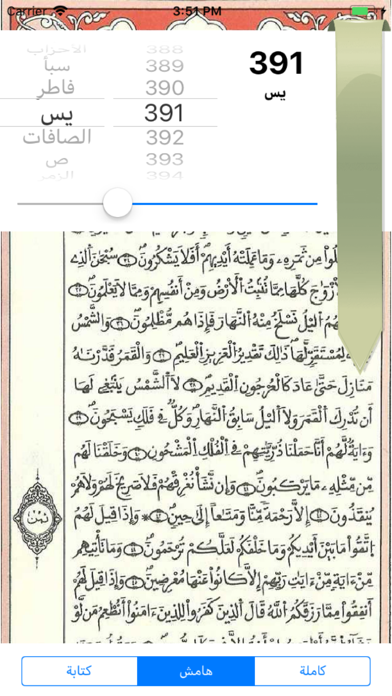 Carrier 3:51 PM
الأحزاب 388
سبأ 389
فاطر 390
يس 391
الصافات 392
ص 393
الزمر 394
391
يس
لُوا مِن ثَمَرِهِۦ وَمَا عَمِلَتْهُ أَيْدِيهِمْ أَفَلَا يَشْكُرُونَ سُبْحَٰنَ الَّذِے
الْأَزْوَٰجَ كُلَّهَا مِمَّا تُنۢبِتُ الْأَرْضُ وَمِنْ أَنفُسِهِمْ وَمِمَّا لَا يَعْلَمُونَ
هُمُ الَيْلُ نَسْلَخُ مِنْهُ النَّهَارَ فَإِذَا هُم مُّظْلِمُونَ وَالشَّمْسُ
لِمُسْتَقَرٍّ لَّهَا ذَٰلِكَ تَقْدِيرُ الْعَزِيزِ الْعَلِيمِ وَالْقَمَرُ قَدَّرْنَٰهُ
مَنَازِلَ حَتَّىٰ عَادَ كَالْعُرْجُونِ الْقَدِيمِ لَا الشَّمْسُ يَنۢبَغِے لَهَا
أَن تُدْرِكَ الْقَمَرَ وَلَا الَيْلُ سَابِقُ النَّهَارِ وَكُلٌّ فِے فَلَكٍ يَسْبَحُونَ
وَءَايَةٌ لَّهُمْ أَنَّا حَمَلْنَا ذُرِّيَّٰتِهِمْ فِے الْفُلْكِ الْمَشْحُونِ وَخَلَقْنَا لَهُم
مِّن مِّثْلِهِۦ مَا يَرْكَبُونَ وَإِن نَّشَأْ نُغْرِقْهُمْ فَلَا صَرِيخَ لَهُمْ وَلَا هُمْ
يُنقَذُونَ إِلَّا رَحْمَةً مِّنَّا وَمَتَٰعًا إِلَىٰ حِينٍ وَإِذَا قِيلَ لَهُمُ
اتَّقُوا مَا بَيْنَ أَيْدِيكُمْ وَمَا خَلْفَكُمْ لَعَلَّكُمْ تُرْحَمُونَ وَمَا تَأْتِيهِم
مِّنْ ءَايَةٍ مِّنْ ءَايَٰتِ رَبِّهِمْ إِلَّا كَانُوا عَنْهَا مُعْرِضِينَ وَإِذَا قِيلَ لَهُمْ
أَنفِقُوا مِمَّا رَزَقَكُمُ اللَّهُ قَالَ الَّذِينَ كَفَرُوا لِلَّذِينَ ءَامَنُوا أَنُطْعِمُ مَن لَّوْ
ثمن
كاملة
هامش
كتابة